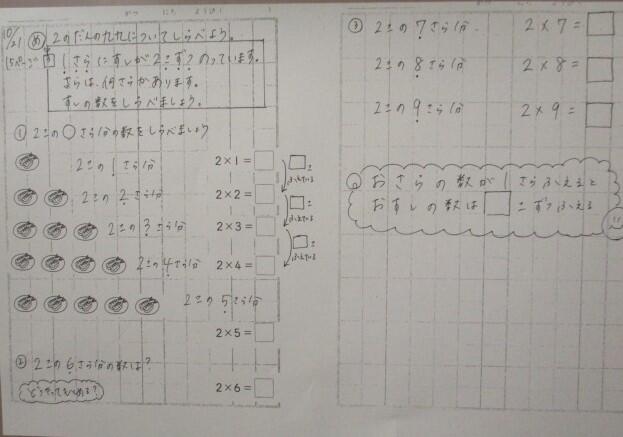 10/21
め 2のだんの九九についてしらべよう。
15ページ
1さらにすしが2こずつのっています。
さらは、何さらかあります。
すしの数をしらべましょう。
① 2この〇さら分の数をしらべましょう
2この1さら分 2×1=
こ
ふえている
2この2さら分 2×2=
こ
ふえている
2この3さら分 2×3=
こ
ふえている
2この4さら分 2×4=
2この5さら分
2×5=
② 2この6さら分の数は?
どうやってもとめる?
2×6=
③ 2この7さら分 2×7=
2この8さら分 2×8=
2この9さら分 2×9=
おさらの数が1さらふえると
おすしの数は こずつふえる